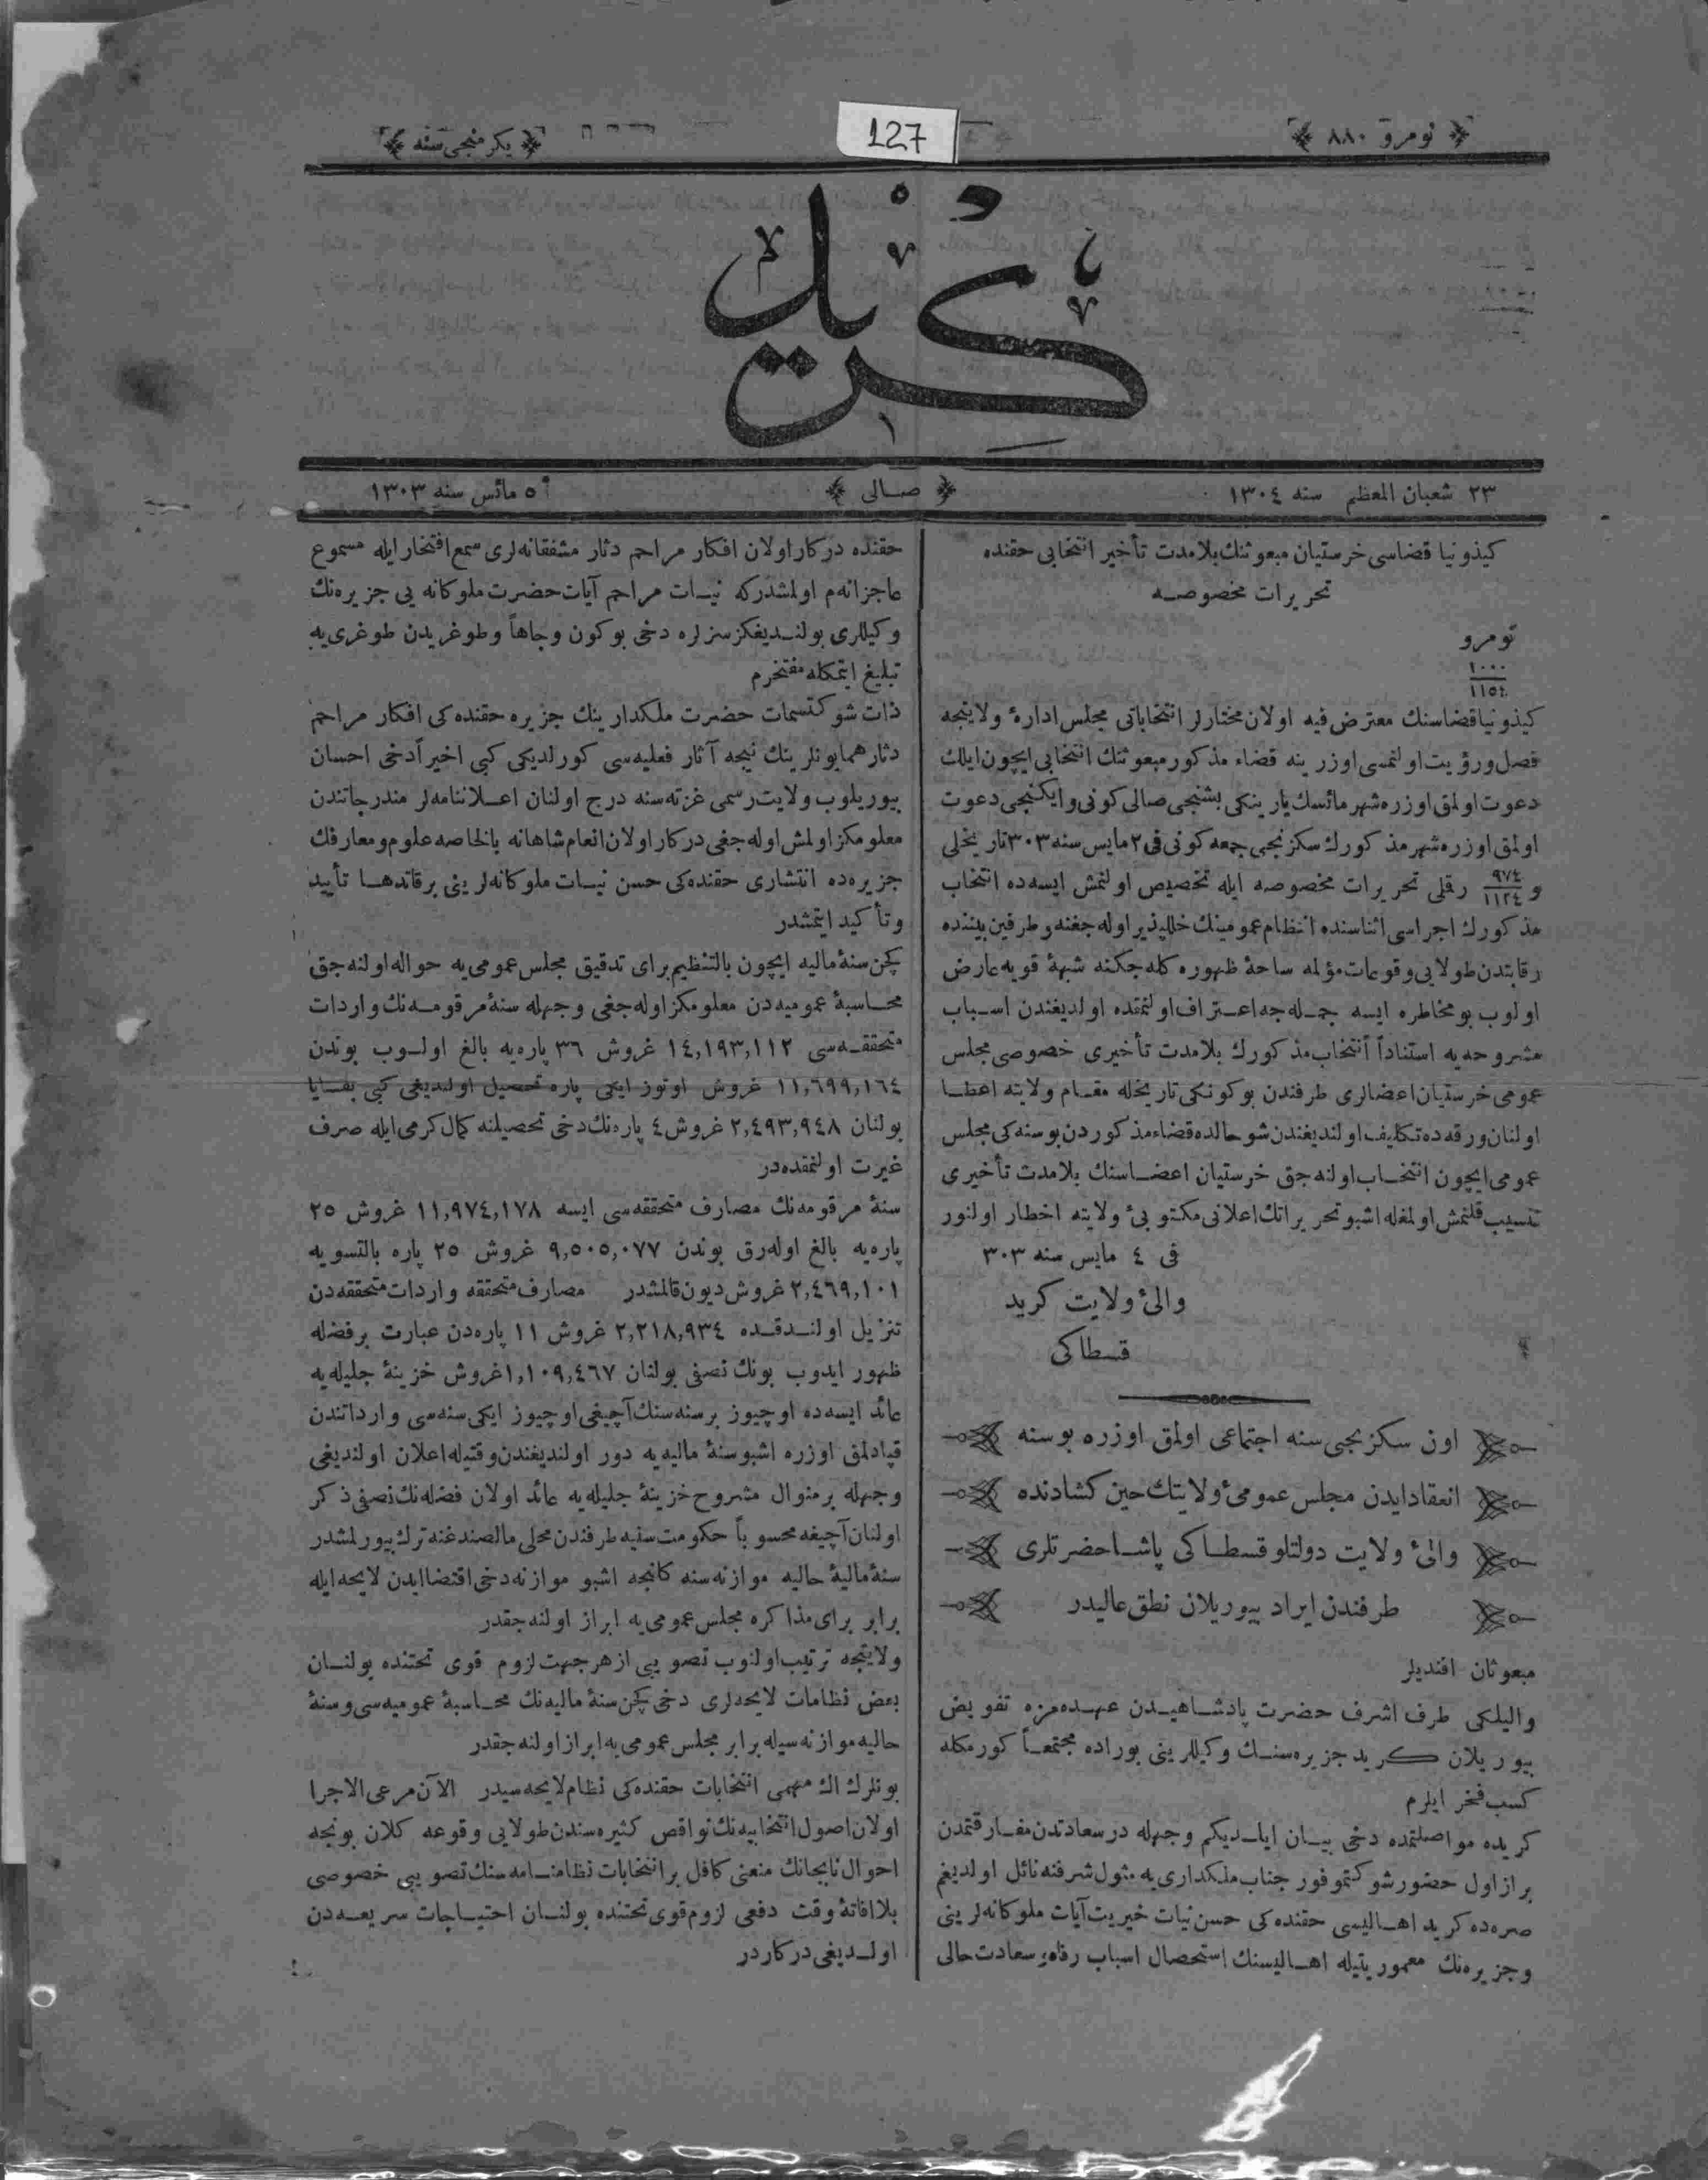 نومرو ٨٨٠
127
یکرمنجی سنه
کرید
٢٣ شعبان المعظم سنه ١٣٠٤
صالی
٥ مائس سنه ١٣٠٣
کیذونیا قضاسی خرستیان مبعوثنك بلامدت تأخیر انتخابی حقنده
تحریرات مخصوصه
نومرو
١٠٠٠
١١٥٤
کیذونیا قضاسنك معترض فیه اولان مختارلر انتخاباتی مجلس ادارهٔ ولایتجه
فصل ورؤیت اولنمسی اوزرینه قضاء مذکور مبعوثنك انتخابی ایچون ایلك
دعوت اولمق اوزره شهر مائسك یارینکی بشنجی صالی کونی و ایکنجی دعوت
اولمق اوزره شهر مذکورك سکزنجی جمعه کونی فی ٢ مایس سنه ٣٠٣ تاریخلی
و ٩٧٤/١١٢٤ رقملی تحریرات مخصوصه ایله تخصیص اولنمش ایسه‌ده انتخاب
مذکورك اجراسی اثناسنده انتظام عمومینك خللپذیر اوله‌جغنه وطرفین بیننده
رقابتدن طولایی وقوعات مؤلمه ساحهٔ ظهوره کله‌جکنه شبههٔ قویه عارض
اولوب بو مخاطره ایسه جمله‌جه اعتراف اولنمقده اولدیغندن اسباب
مشروحه‌یه استناداً انتخاب مذکورك بلامدت تأخیری خصوصی مجلس
عمومی خرستیان اعضالری طرفندن بوکونکی تاریخله مقام ولایته اعطا
اولنان ورقه‌ده تکلیف اولندیغندن شو حالده قضاء مذکوردن بوسنه‌کی مجلس
عمومی ایچون انتخاب اولنه‌جق خرستیان اعضاسنك بلامدت تأخیری
تنسیب قلنمش اولمغله اشبو تحریراتك اعلانی مکتوبیٔ ولایته اخطار اولنور
فی ٤ مایس سنه ٣٠٣
والیٔ ولایت کرید
قسطاکی
اون سکزنجی سنه اجتماعی اولمق اوزره بوسنه
انعقاد ایدن مجلس عمومیٔ ولایتك حین کشادنده
والیٔ ولایت دولتلو قسطاکی پاشا حضرتلری
طرفندن ایراد بیوریلان نطق عالیدر
مبعوثان افندیلر
والیلکی طرف اشرف حضرت پادشاهیدن عهده‌مزه تفویض
بیوریلان کرید جزیره‌سنك وکیللرینی بوراده مجتمعاً کورمکله
کسب فخر ایلرم
کریده مواصلتمده دخی بیان ایلدیکم وجهله درسعادتدن مفارقتمدن
براز اول حضور شوکتموفور جناب ملکداری‌یه مثول شرفنه نائل اولدیغم
صره‌ده کرید اهالیسی حقنده‌کی حسن نیات خیریت آیات ملوکانه‌لرینی
وجزیره‌نك معموریتیله اهالیسنك استحصال اسباب رفاه و سعادت حالی
حقنده درکار اولان افکار مراحم دثار مشفقانه‌لری سمع افتخار ایله مسموع
عاجزانه‌م اولمشدرکه نیات مراحم آیات حضرت ملوکانه‌یی جزیره‌نك
وکیللری بولندیغکز سزلره دخی بوکون وجاهاً وطوغریدن طوغری‌یه
تبلیغ ایتمکله مفتخرم
ذات شوکتسمات حضرت ملکدارینك جزیره حقنده‌کی افکار مراحم
دثار همایونلرینك نیجه آثار فعلیه‌سی کورلدیکی کبی اخیراً دخی احسان
بیوریلوب ولایت رسمی غزته‌سنه درج اولنان اعلاننامه‌لر مندرجاتندن
معلومکز اولمش اوله‌جغی درکار اولان انعام شاهانه بالخاصه علوم ومعارفك
جزیره‌ده انتشاری حقنده‌کی حسن نیات ملوکانه‌لرینی برقاتدها تأیید
وتأکید ایتمشدر
کچن سنهٔ مالیه ایچون بالتنظیم برای تدقیق مجلس عمومی‌یه حواله اولنه‌جق
محاسبهٔ عمومیه‌دن معلومکز اوله‌جغی وجهله سنهٔ مرقومه‌نك واردات
متحققه‌سی ١٤,١٩٣,١١٢ غروش ٣٦ پاره‌یه بالغ اولوب بوندن
١١,٦٩٩,١٦٤ غروش اوتوز ایکی پاره تحصیل اولندیغی کبی بقایا
بولنان ٢,٤٩٣,٩٤٨ غروش ٤ پاره‌نك دخی تحصیلنه کمال کرمی ایله صرف
غیرت اولنمقده‌در
سنهٔ مرقومه‌نك مصارف متحققه‌سی ایسه ١١,٩٧٤,١٧٨ غروش ٢٥
پاره‌یه بالغ اوله‌رق بوندن ٩,٥٠٥,٠٧٧ غروش ٢٥ پاره بالتسویه
٢,٤٦٩,١٠١ غروش دیون قالمشدر مصارف متحققه واردات متحققه‌دن
تنزیل اولندقده ٢,٢١٨,٩٣٤ غروش ١١ پاره‌دن عبارت برفضله
ظهور ایدوب بونك نصفی بولنان ١,١٠٩,٤٦٧ غروش خزینهٔ جلیله‌یه
عائد ایسه‌ده اوچیوز برسنه‌سنك آچیغی اوچیوز ایکی سنه‌سی وارداتندن
قپادلمق اوزره اشبو سنهٔ مالیه‌یه دور اولندیغندن وقتیله اعلان اولندیغی
وجهله برمنوال مشروح خزینهٔ جلیله‌یه عائد اولان فضله‌نك نصفی ذکر
اولنان آچیغه محسوباً حکومت سنیه طرفندن محلی مال صندغنه ترك بیورلمشدر
سنهٔ مالیهٔ حالیه موازنه‌سنه کلنجه اشبو موازنه دخی اقتضا ایدن لایحه ایله
برابر برای مذاکره مجلس عمومی‌یه ابراز اولنه‌جقدر
ولایتجه ترتیب اولنوب تصویبی از هر جهت لزوم قوی تحتنده بولنان
بعض نظامات لایحه‌لری دخی کچن سنهٔ مالیه‌نك محاسبهٔ عمومیه‌سی وسنهٔ
حالیه موازنه‌سیله برابر مجلس عمومی‌یه ابراز اولنه‌جقدر
بونلرك اك مهمی انتخابات حقنده‌کی نظام لایحه‌سیدر الآن مرعی الاجرا
اولان اصول انتخابیه‌نك نواقص کثیره‌سندن طولایی وقوعه کلان بونجه
احوال نابجانك منعنی کافل بر انتخابات نظامنامه‌سنك تصویبی خصوصی
بلا افاتهٔ وقت دفعی لزوم قوی تحتنده بولنان احتیاجات سریعه‌دن
اولدیغی درکاردر